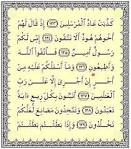 كَذَّبَتْ عَادٌ الْمُرْسَلِينَ ﴿١٢٣﴾ إِذْ قَالَ لَهُمْ
أَخُوهُمْ هُودٌ أَلَا تَتَّقُونَ ﴿١٢٤﴾ إِنِّي لَكُمْ
رَسُولٌ أَمِينٌ ﴿١٢٥﴾ فَاتَّقُوا اللَّهَ
وَأَطِيعُونِ ﴿١٢٦﴾ وَمَا أَسْـَٔلُكُمْ عَلَيْهِ مِنْ
أَجْرٍ إِنْ أَجْرِيَ إِلَّا عَلَىٰ رَبِّ
الْعَٰلَمِينَ ﴿١٢٧﴾ أَتَبْنُونَ بِكُلِّ رِيعٍ ءَايَةً
تَعْبَثُونَ ﴿١٢٨﴾ وَتَتَّخِذُونَ مَصَانِعَ لَعَلَّكُمْ
تَخْلُدُونَ ﴿١٢٩﴾ وَإِذَا بَطَشْتُمْ بَطَشْتُمْ